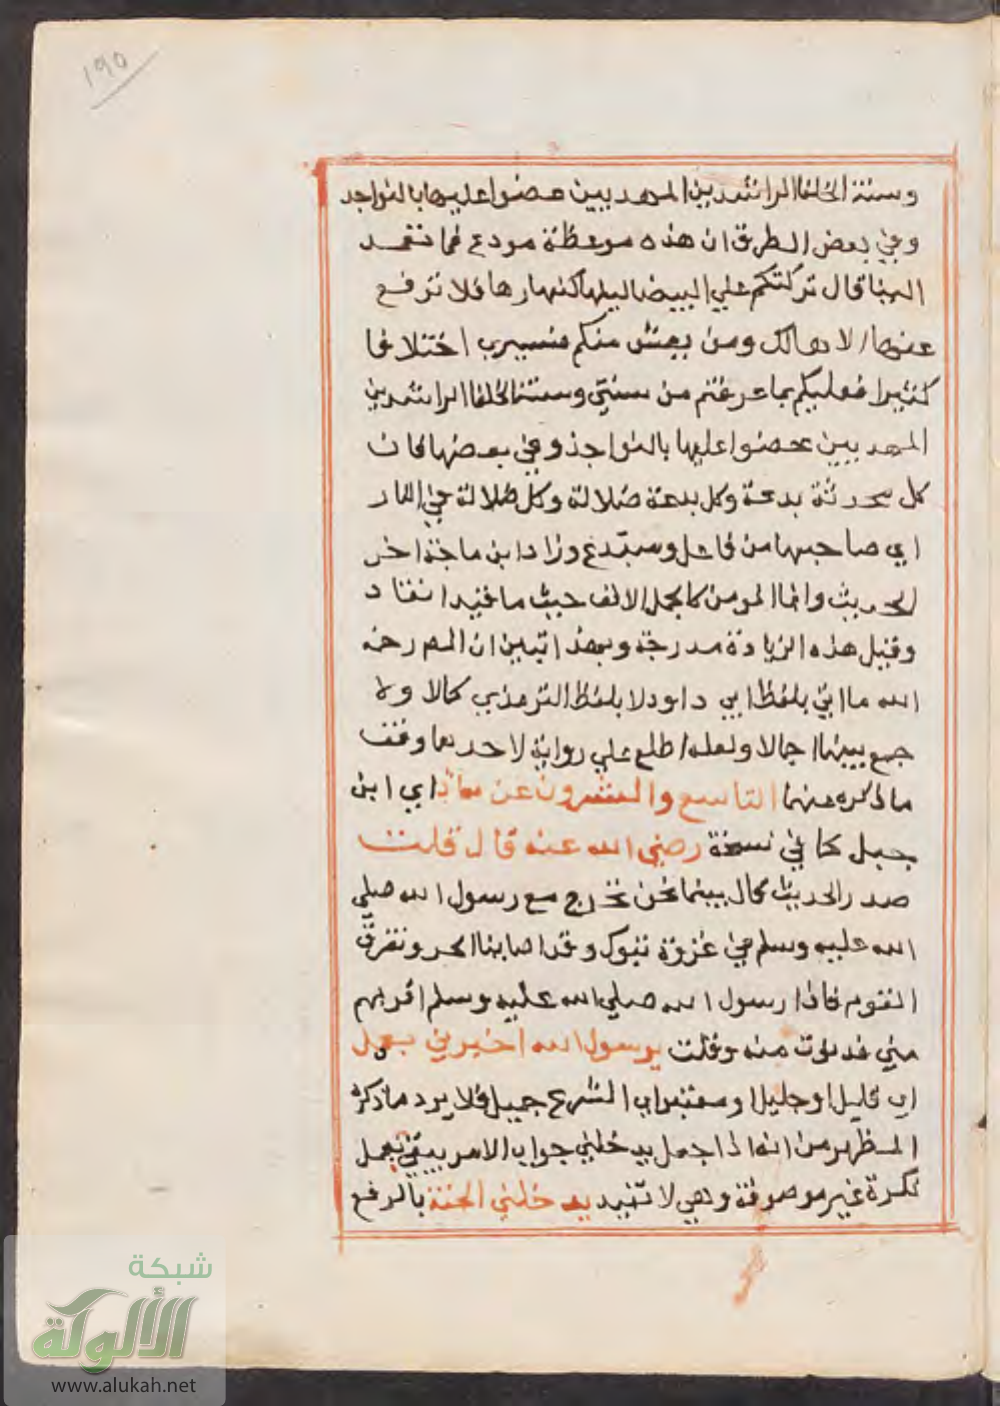 ١٩٥
وسنة الخلفا الراشدين المهديين عضوا عليها بالنواجد
وفي بعض الطرق ان هذه موعظة مودع فما تعهد
الينا قال تركتكم علي البيضا ليلها كنهارها فلا ترفع
عنها الا هالك ومن يعش منكم فسيري اختلافا
كثيرا فعليكم بما عرفتم من سنتي وسنة الخلفا الراشدين
المهديين عضوا عليها بالنواجذ وفي بعضها فان
كل محدثة بدعة وكل بدعة ضلالة وكل ضلالة في النار
اي صاحبها من فاعل ومبتدع وزاد ابن ماجة اخر
الحديث وانما المومن كالجمل الانف حيث ما قيد انقاد
وقيل هذه الزيادة مدرجة وبهذا تبين ان المص رحمه
الله ما اتي بلفظ ابي داود لا بلفظ الترمذي كمالا ولا
جمع بينهما اجمالا ولعله اطلع علي رواية لاحدهما وفق
ما ذكره عنهما التاسع والعشرون عن معاذ اي ابن
جبل كما في نسخة رضي الله عنه قال قلت
صدر الحديث قال بينما نحن نخرج مع رسول الله صلي
الله عليه وسلم في غزوة تبوك وقد اصابنا الحر وتفرق
القوم فاذا رسول الله صلي الله عليه وسلم اقربهم
مني فدنوت منه وقلت يرسول الله اخبرني بعمل
اي قليل او جليل او معتبر في الشرع جميل فلا يرد ما ذكره
المظهر من انه اذا جعل يدخلني جواب الامر يبقي بعمل
نكرة غير موصوفة وهي لا تفيد يدخلني الجنة بالرفع
شبكة
الألوكة
www.alukah.net